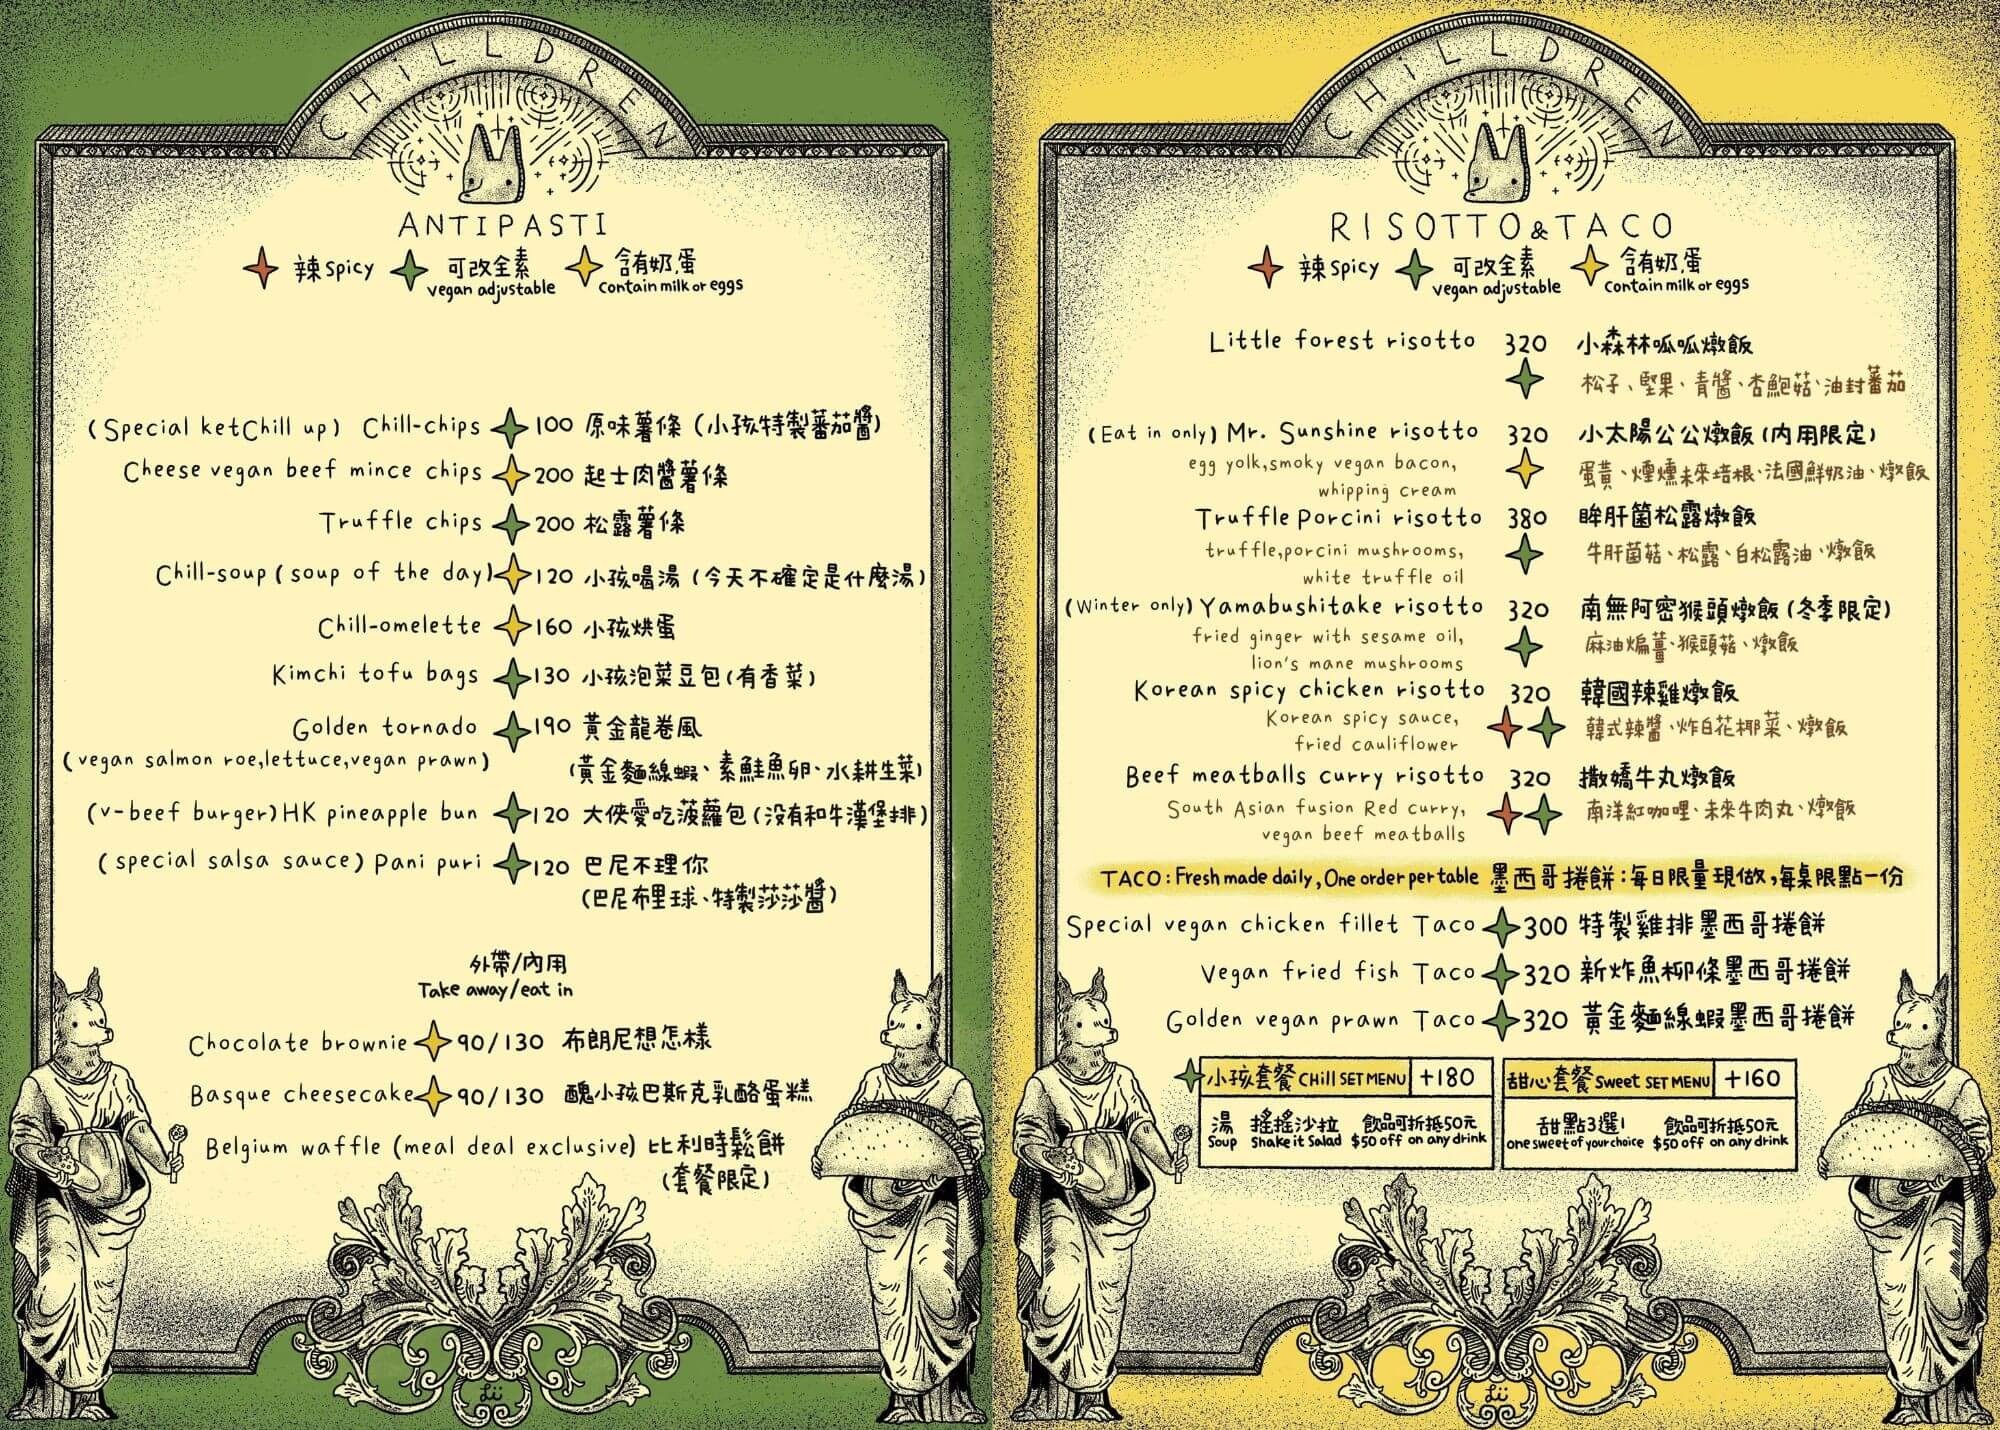 CHiLLDREN
ANTIPASTI
辣 Spicy 可改全素 含有奶.蛋
vegan adjustable contain milk or eggs
(Special ketChill up) Chill-chips 100 原味薯條 (小孩特製蕃茄醬)
Cheese vegan beef mince chips 200 起士肉醬薯條
Truffle chips 200 松露薯條
Chill-soup (soup of the day) 120 小孩喝湯 (今天不確定是什麼湯)
Chill-omelette 160 小孩烘蛋
Kimchi tofu bags 130 小孩泡菜豆包(有香菜)
Golden tornado 190 黃金龍卷風
(vegan salmon roe,lettuce,vegan prawn) (黃金麵線蝦、素鮭魚卵、水耕生菜)
(v-beef burger)HK pineapple bun 120 大俠愛吃菠蘿包(没有和牛漢堡排)
(special salsa sauce) Pani puri 120 巴尼不理你
(巴尼布里球、特製莎莎醬)
外帶/內用
Take away/eat in
Chocolate brownie 90/130 布朗尼想怎樣
Basque cheesecake 90/130 醜小孩巴斯克乳酪蛋糕
Belgium waffle (meal deal exclusive) 比利時鬆餅
(套餐限定)
Lii
CHiLLDREN
RISOTTO&TACO
辣 Spicy 可改全素 含有奶.蛋
vegan adjustable contain milk or eggs
Little forest risotto 320 小森林呱呱燉飯
松子、堅果、青醬、杏鮑菇、油封蕃茄
(Eat in only) Mr. Sunshine risotto 320 小太陽公公燉飯 (內用限定)
egg yolk,smoky vegan bacon, 蛋黃、煙燻未來培根、法國鮮奶油、燉飯
whipping cream
Truffle Porcini risotto 380 眸肝菌松露燉飯
truffle,porcini mushrooms, 牛肝菌菇、松露、白松露油、燉飯
white truffle oil
(Winter only) Yamabushitake risotto 320 南無阿密猴頭燉飯 (冬季限定)
fried ginger with sesame oil, 麻油煸薑、猴頭菇、燉飯
lion's mane mushrooms
Korean spicy chicken risotto 320 韓國辣雞燉飯
Korean spicy sauce, 韓式辣醬、炸白花椰菜、燉飯
fried cauliflower
Beef meatballs curry risotto 320 撒嬌牛丸燉飯
South Asian fusion Red curry, 南洋紅咖哩、未來牛肉丸、燉飯
vegan beef meatballs
TACO: Fresh made daily, One order per table 墨西哥捲餅:每日限量現做,每桌限點一份
Special vegan chicken fillet Taco 300 特製雞排墨西哥捲餅
Vegan fried fish Taco 320 新炸魚柳條墨西哥捲餅
Golden vegan prawn Taco 320 黃金麵線蝦墨西哥捲餅
小孩套餐 CHill SET MENU +180 甜心套餐 Sweet SET MENU +160
湯 搖搖沙拉 飲品可折抵50元 甜點3選1 飲品可折抵50元
Soup Shake it Salad $50 off on any drink one sweet of your choice $50 off on any drink
Lii